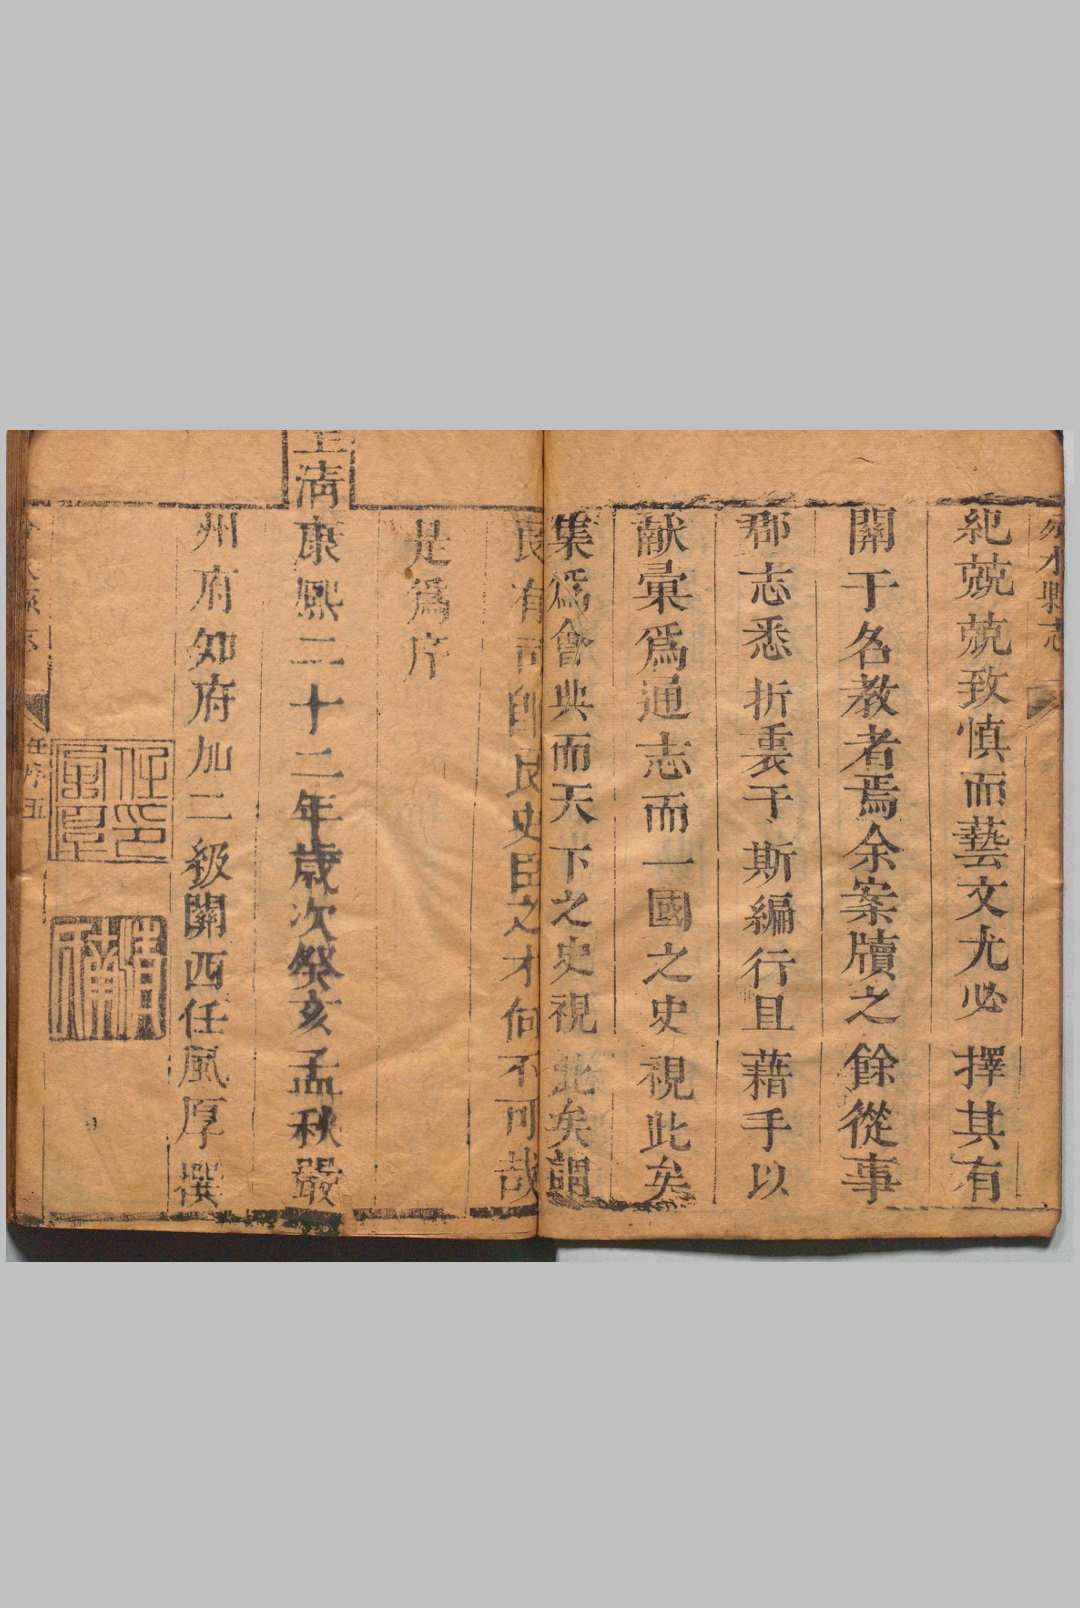 水縣志
紀兢兢致慎而藝文尤必擇其有
關于名教者焉余案牘之餘從事
郡志悉折衷于斯編行且藉手以
獻彙爲通志而一國之史視此矣
集爲會典而天下之史視此矣謂
良有司卽良史臣之才何不可哉
是爲序
皇清康熙二十二年歲次癸亥孟秋嚴
州府知府加二級關西任風厚撰
任序五